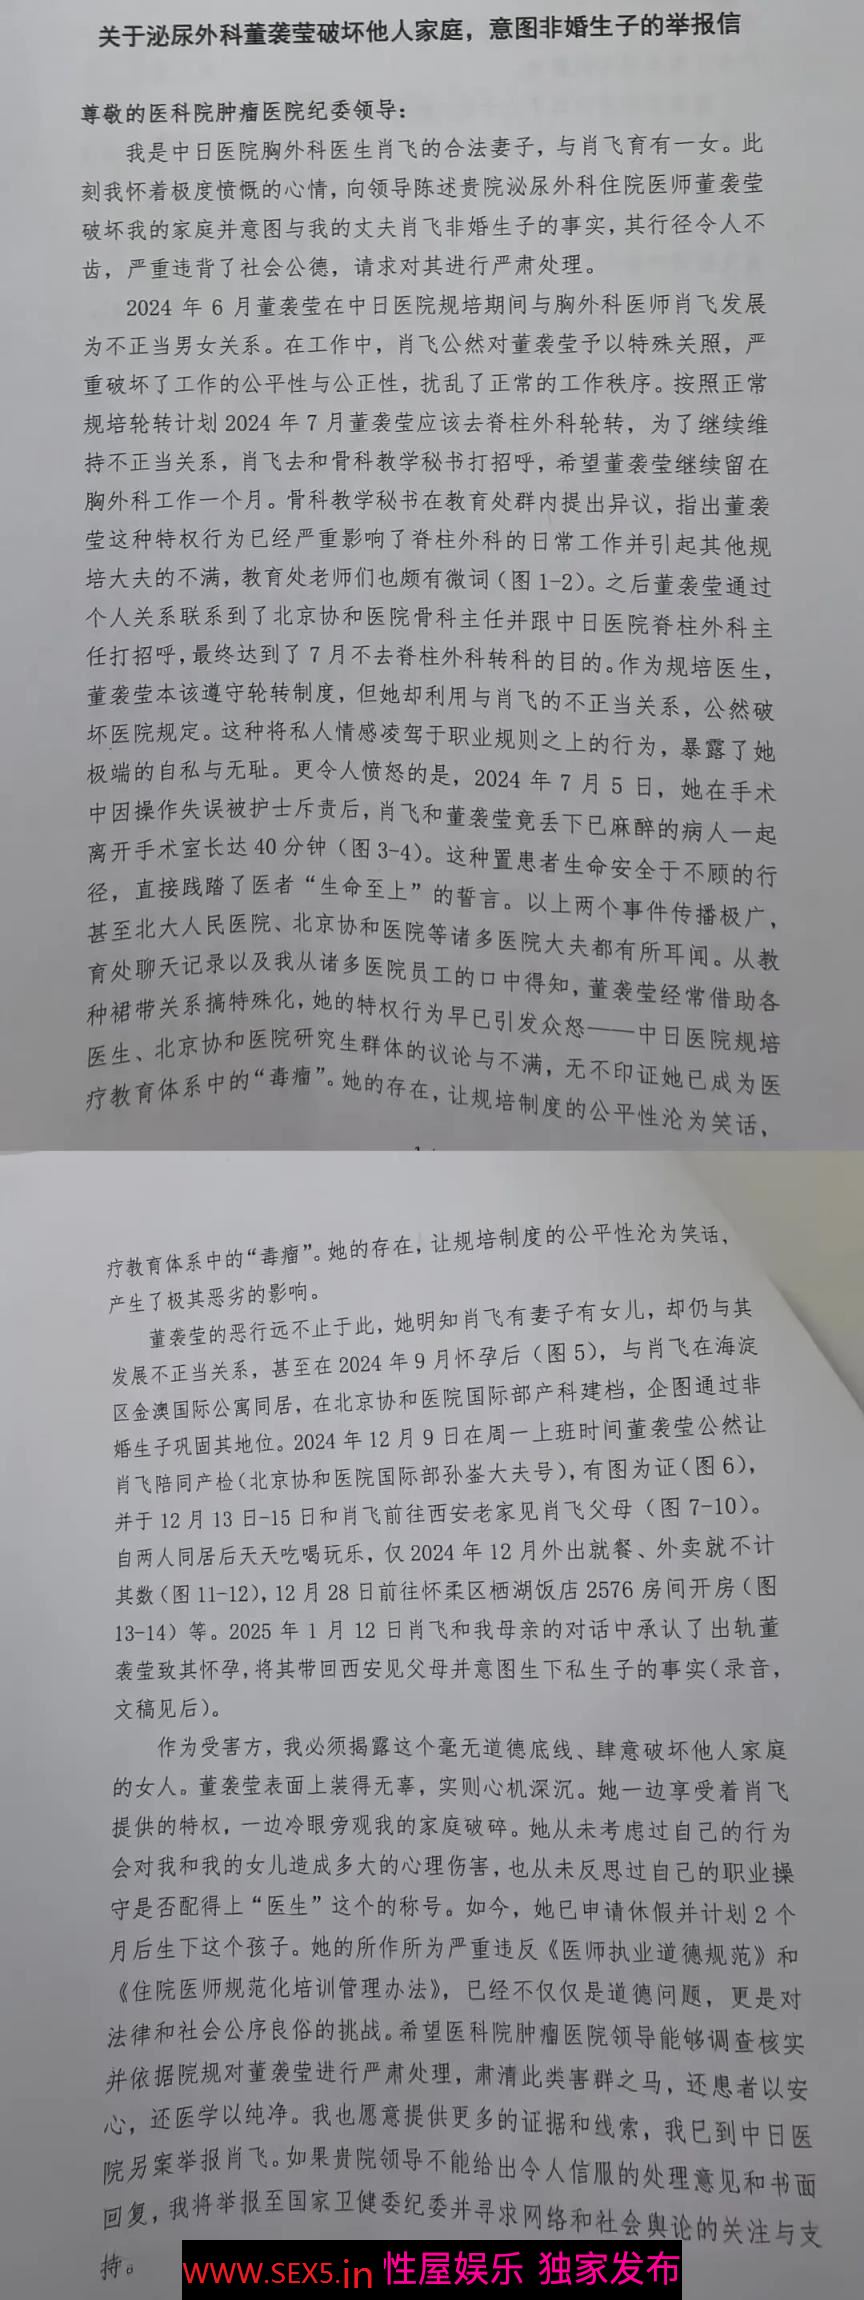 关于泌尿外科董袭莹破坏他人家庭，意图非婚生子的举报信
尊敬的医科院肿瘤医院纪委领导：
我是中日医院胸外科医生肖飞的合法妻子，与肖飞育有一女。此
刻我怀着极度愤慨的心情，向领导陈述贵院泌尿外科住院医师董袭莹
破坏我的家庭并意图与我的丈夫肖飞非婚生子的事实，其行径令人不
齿，严重违背了社会公德，请求对其进行严肃处理。
2024 年 6 月董袭莹在中日医院规培期间与胸外科医师肖飞发展
为不正当男女关系。在工作中，肖飞公然对董袭莹予以特殊关照，严
重破坏了工作的公平性与公正性，扰乱了正常的工作秩序。按照正常
规培轮转计划 2024 年 7 月董袭莹应该去脊柱外科轮转，为了继续维
持不正当关系，肖飞去和骨科教学秘书打招呼，希望董袭莹继续留在
胸外科工作一个月。骨科教学秘书在教育处群内提出异议，指出董袭
莹这种特权行为已经严重影响了脊柱外科的日常工作并引起其他规
培大夫的不满，教育处老师们也颇有微词（图 1-2）。之后董袭莹通过
个人关系联系到了北京协和医院骨科主任并跟中日医院脊柱外科主
任打招呼，最终达到了 7 月不去脊柱外科转科的目的。作为规培医生，
董袭莹本该遵守轮转制度，但她却利用与肖飞的不正当关系，公然破
坏医院规定。这种将私人情感凌驾于职业规则之上的行为，暴露了她
极端的自私与无耻。更令人愤怒的是，2024 年 7 月 5 日，她在手术
中因操作失误被护士斥责后，肖飞和董袭莹竟丢下已麻醉的病人一起
离开手术室长达 40 分钟（图 3-4）。这种置患者生命安全于不顾的行
径，直接践踏了医者“生命至上”的誓言。以上两个事件传播极广，
甚至北大人民医院、北京协和医院等诸多医院大夫都有所耳闻。从教
育处聊天记录以及我从诸多医院员工的口中得知，董袭莹经常借助各
种裙带关系搞特殊化，她的特权行为早已引发众怒——中日医院规培
医生、北京协和医院研究生群体的议论与不满，无不印证她已成为医
疗教育体系中的“毒瘤”。她的存在，让规培制度的公平性沦为笑话，
疗教育体系中的“毒瘤”。她的存在，让规培制度的公平性沦为笑话，
产生了极其恶劣的影响。
董袭莹的恶行远不止于此，她明知肖飞有妻子有女儿，却仍与其
发展不正当关系，甚至在 2024 年 9 月怀孕后（图 5），与肖飞在海淀
区金澳国际公寓同居，在北京协和医院国际部产科建档，企图通过非
婚生子巩固其地位。2024 年 12 月 9 日在周一上班时间董袭莹公然让
肖飞陪同产检（北京协和医院国际部孙崟大夫号），有图为证（图 6），
并于 12 月 13 日-15 日和肖飞前往西安老家见肖飞父母（图 7-10）。
自两人同居后天天吃喝玩乐，仅 2024 年 12 月外出就餐、外卖就不计
其数（图 11-12），12 月 28 日前往怀柔区栖湖饭店 2576 房间开房（图
13-14）等。2025 年 1 月 12 日肖飞和我母亲的对话中承认了出轨董
袭莹致其怀孕，将其带回西安见父母并意图生下私生子的事实（录音，
文稿见后）。
作为受害方，我必须揭露这个毫无道德底线、肆意破坏他人家庭
的女人。董袭莹表面上装得无辜，实则心机深沉。她一边享受着肖飞
提供的特权，一边冷眼旁观我的家庭破碎。她从未考虑过自己的行为
会对我和我的女儿造成多大的心理伤害，也从未反思过自己的职业操
守是否配得上“医生”这个的称号。如今，她已申请休假并计划 2 个
月后生下这个孩子。她的所作所为严重违反《医师执业道德规范》和
《住院医师规范化培训管理办法》，已经不仅仅是道德问题，更是对
法律和社会公序良俗的挑战。希望医科院肿瘤医院领导能够调查核实
并依据院规对董袭莹进行严肃处理，肃清此类害群之马，还患者以安
心，还医学以纯净。我也愿意提供更多的证据和线索，我已到中日医
院另案举报肖飞。如果贵院领导不能给出令人信服的处理意见和书面
回复，我将举报至国家卫健委纪委并寻求网络和社会舆论的关注与支
持。
www.SEX5.in 性屋娱乐 独家发布